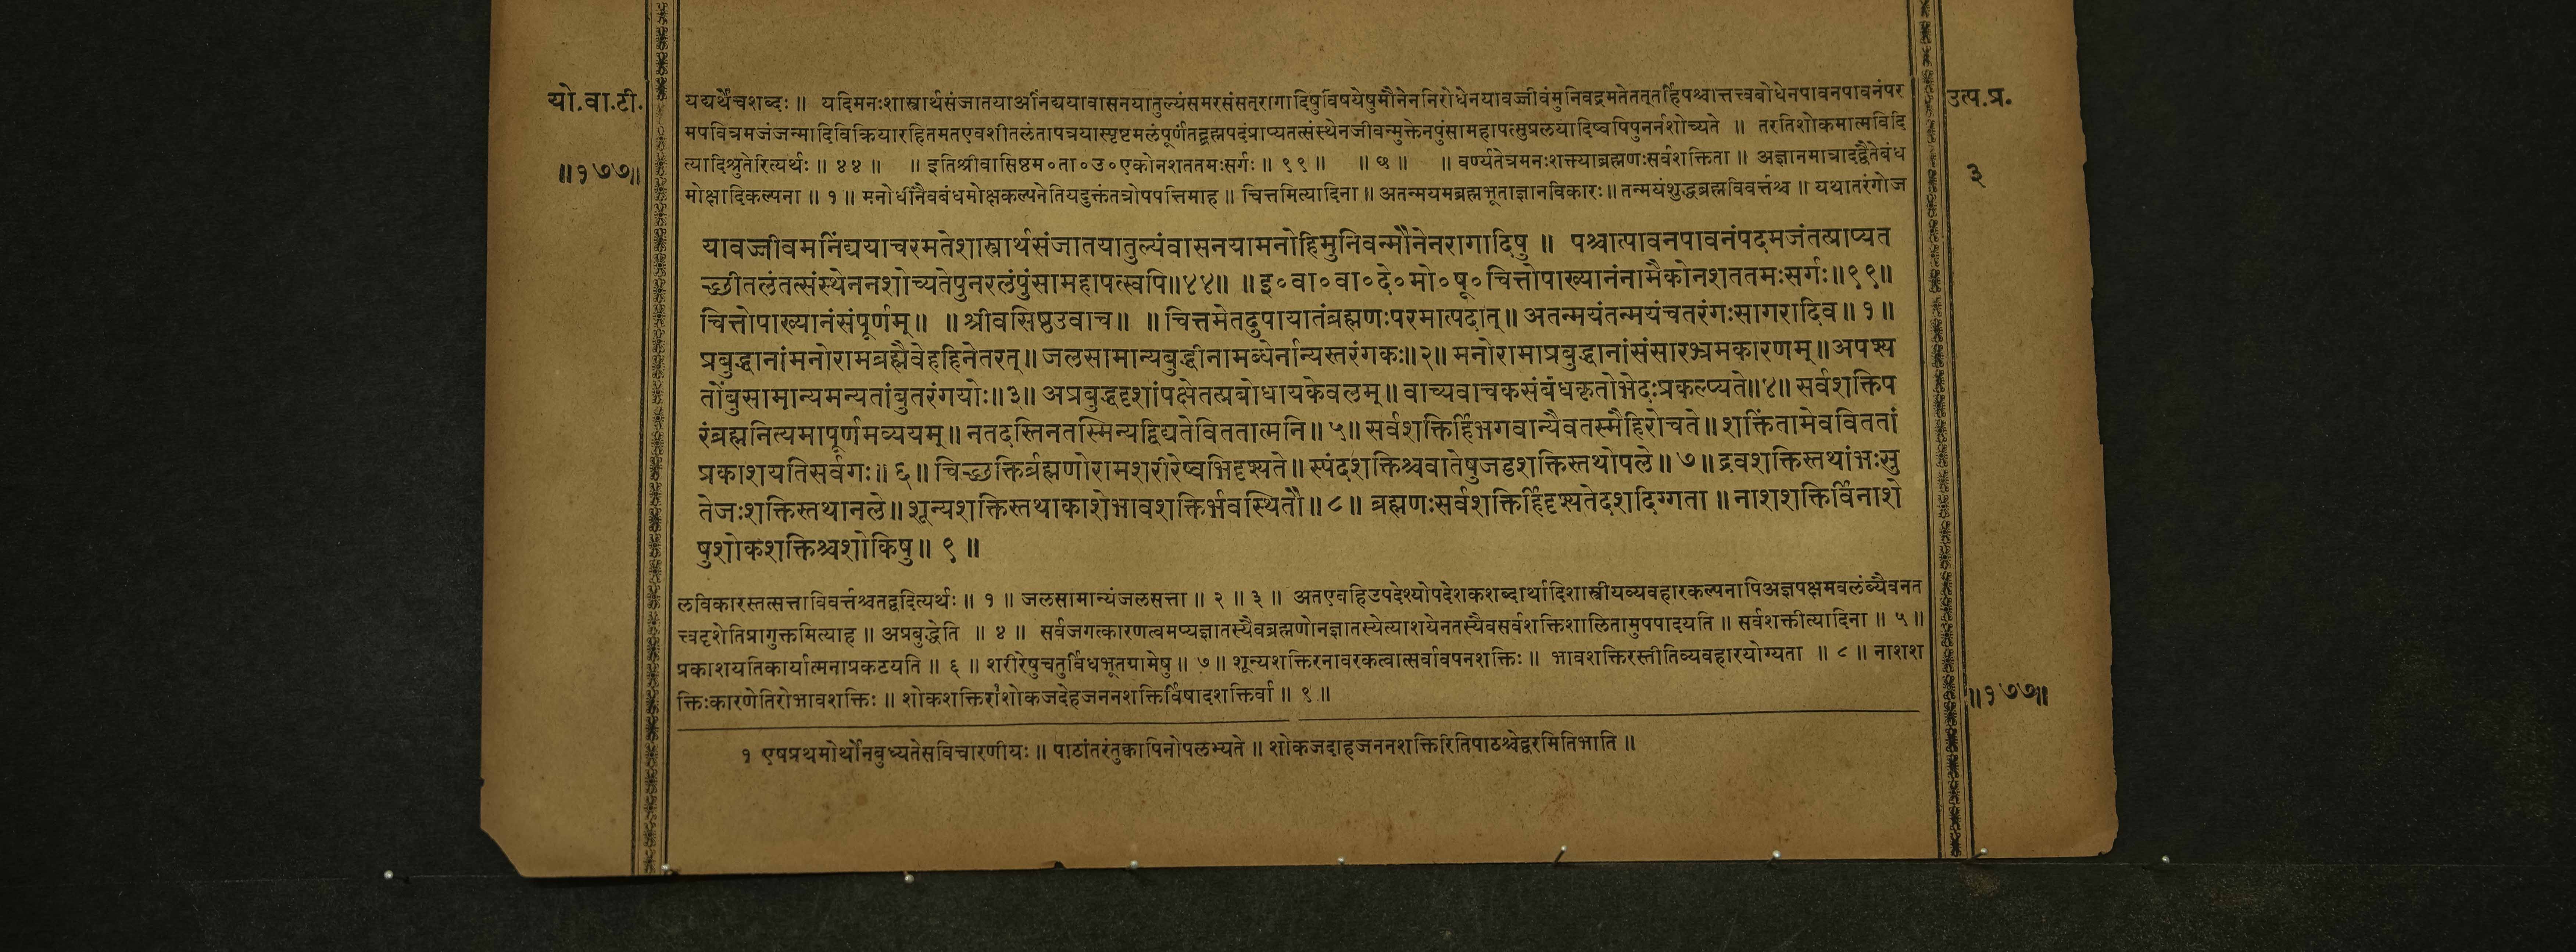 यो.वा.टी.
॥१७७॥
यद्यर्थेचशब्दः ॥ यदिमनःशास्त्रार्थसंजातयाअनिंद्ययावासनयातुल्यंसमरसंसत्रागादिषुविषयेषुमौनेननिरोधेनयावज्जीवंमुनिवद्रमतेतत्तर्हिपश्चात्तत्त्वबोधेनपावनपावनंपर
मपवित्रमजंजन्मादिविक्रियारहितमतएवशीतलंतापत्रयास्पृष्टमलंपूर्णंतद्ब्रह्मपदंप्राप्यतत्संस्थेनजीवन्मुक्तेनपुंसामहापत्सुप्रलयादिष्वपिपुनर्नशोच्यते ॥ तरतिशोकमात्मविदि
त्यादिश्रुतेरित्यर्थः ॥ ४४ ॥ ॥ इतिश्रीवासिष्ठम०ता०उ०एकोनशततमःसर्गः ॥ ९९ ॥ ॥ छ ॥ ॥ वर्ण्यतेत्रमनःशक्त्याब्रह्मणःसर्वशक्तिता ॥ अज्ञानमात्रादद्वैतेबंध
मोक्षादिकल्पना ॥ १ ॥ मनोधीनैवबंधमोक्षकल्पनेतियदुक्तंतत्रोपपत्तिमाह ॥ चित्तमित्यादिना ॥ अतन्मयमब्रह्मभूताज्ञानविकारः ॥ तन्मयंशुद्धब्रह्मविवर्त्तश्च ॥ यथातरंगोज
यावज्जीवमनिंद्ययाचरमतेशास्त्रार्थसंजातयातुल्यंवासनयामनोहिमुनिवन्मौनेनरागादिषु ॥ पश्चात्पावनपावनंपदमजंतत्प्राप्यत
च्छीतलंतत्संस्थेननशोच्यतेपुनरलंपुंसामहापत्स्वपि॥४४॥ ॥इ०वा०वा०दे०मो०षू०चित्तोपाख्यानंनामैकोनशततमःसर्गः॥९९॥
चित्तोपाख्यानंसंपूर्णम्॥ ॥श्रीवसिष्ठउवाच॥ ॥चित्तमेतदुपायातंब्रह्मणःपरमात्पदात्॥अतन्मयंतन्मयंचतरंगःसागरादिव॥१॥
प्रबुद्धानांमनोरामब्रह्मैवेहहिनेतरत्॥जलसामान्यबुद्धीनामब्धेर्नान्यस्तरंगकः॥२॥मनोरामाप्रबुद्धानांसंसारभ्रमकारणम्॥अपश्य
तोंबुसामान्यमन्यतांबुतरंगयोः॥३॥अप्रबुद्धदृशांपक्षेतत्प्रबोधायकेवलम्॥वाच्यवाचकसंबंधकृतोभेदःप्रकल्प्यते॥४॥सर्वशक्तिप
रंब्रह्मनित्यमापूर्णमव्ययम्॥नतदस्तिनतस्मिन्यद्विद्यतेविततात्मनि॥५॥सर्वशक्तिर्हिभगवान्यैवतस्मैहिरोचते॥शक्तिंतामेवविततां
प्रकाशयतिसर्वगः॥६॥चिच्छक्तिर्ब्रह्मणोरामशरीरेष्वभिदृश्यते॥स्पंदशक्तिश्चवातेषुजडशक्तिस्तथोपले॥७॥द्रवशक्तिस्तथांभःसु
तेजःशक्तिस्तथानले॥शून्यशक्तिस्तथाकाशेभावशक्तिर्भवस्थितौ॥८॥ब्रह्मणःसर्वशक्तिर्हिदृश्यतेदशदिग्गता॥नाशशक्तिर्विनाशे
षुशोकशक्तिश्चशोकिषु॥९॥
लविकारस्तत्सत्ताविवर्त्तश्चतद्वदित्यर्थः ॥ १ ॥ जलसामान्यंजलसत्ता ॥ २ ॥ ३ ॥ अतएवहिउपदेश्योपदेशकशब्दार्थादिशास्त्रीयव्यवहारकल्पनापिअज्ञपक्षमवलंब्यैवनत
त्त्वदृशेतिप्रागुक्तमित्याह ॥ अप्रबुद्धेति ॥ ४ ॥ सर्वजगत्कारणत्वमप्यज्ञातस्यैवब्रह्मणोनज्ञातस्येत्याशयेनतस्यैवसर्वशक्तिशालितामुपपादयति ॥ सर्वशक्तीत्यादिना ॥ ५ ॥
प्रकाशयतिकार्यात्मनाप्रकटयति ॥ ६ ॥ शरीरेषुचतुर्विधभूतग्रामेषु ॥ ७ ॥ शून्यशक्तिरनावरकत्वात्सर्वावपनशक्तिः ॥ भावशक्तिरस्तीतिव्यवहारयोग्यता ॥ ८ ॥ नाशश
क्तिःकारणेतिरोभावशक्तिः ॥ शोकशक्तिरांशोकजदेहजननशक्तिर्विषादशक्तिर्वा ॥ ९ ॥
१ एषप्रथमोर्थोनबुध्यतेसविचारणीयः ॥ पाठांतरंतुक्वापिनोपलभ्यते ॥ शोकजदाहजननशक्तिरितिपाठश्चेद्वरमितिभाति ॥
उत्प.प्र.
३
॥१७७॥